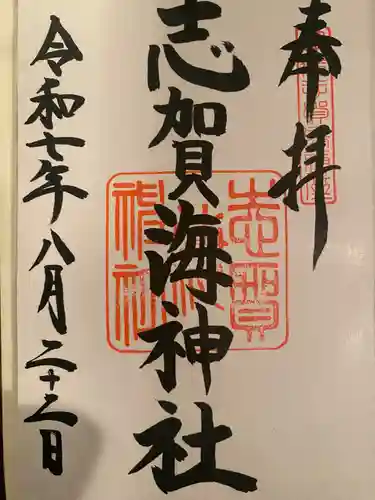 奉拝
志賀海神社
令和七年八月二十二日
志賀海神社